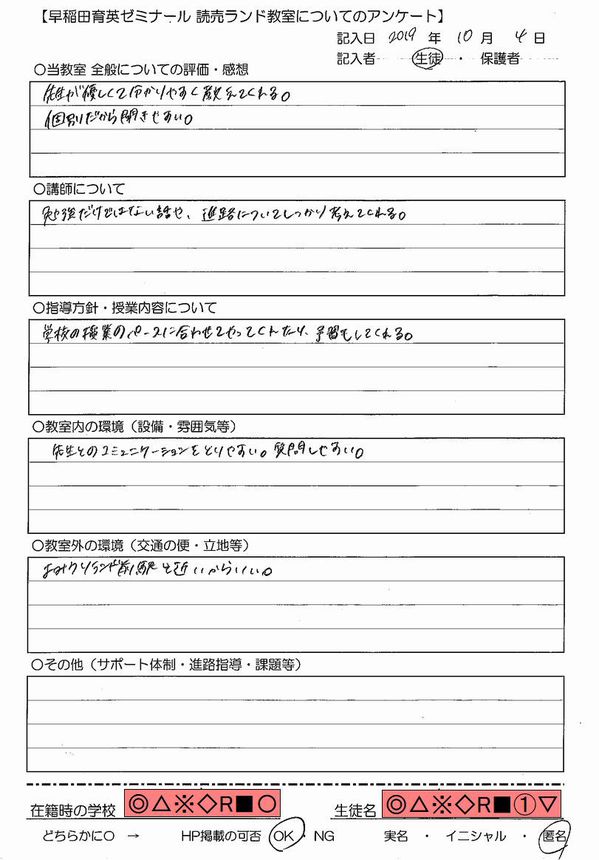 【早稲田育英ゼミナール 読売ランド教室についてのアンケート】
記入日 2019 年 10 月 4 日
記入者 生徒 ・ 保護者
○当教室 全般についての評価・感想
先生が優しくて分かりやすく教えてくれる。
個別だから聞きやすい。
○講師について
勉強だけではない話や、進路についてしっかり考えてくれる。
○指導方針・授業内容について
学校の授業のペースに合わせてやってくれたり、予習もしてくれる。
○教室内の環境（設備・雰囲気等）
先生とのコミュニケーションをとりやすい。質問しやすい。
○教室外の環境（交通の便・立地等）
よみうりランド前駅と近いからいい。
○その他（サポート体制・進路指導・課題等）
在籍時の学校 ◎△※◇R■○ 生徒名 ◎△※◇R■①▽
どちらかに○ → HP掲載の可否 OK・NG 実名 ・ イニシャル ・ 匿名